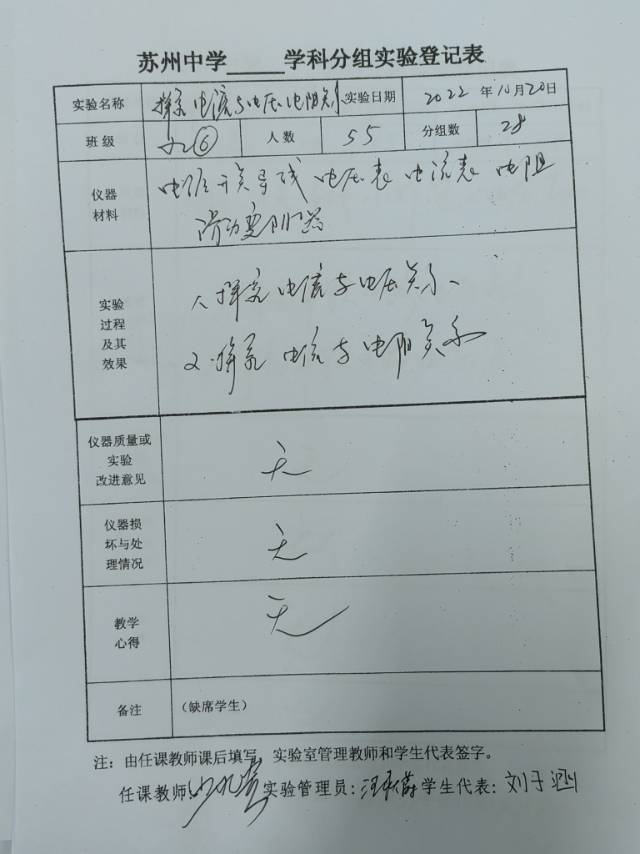 苏州中学____学科分组实验登记表
实验名称 探究电流与电压、电阻关系 实验日期 2022 年 10 月 20 日
班 级 九⑥ 人 数 55 分组数 28
仪器 电源 开关 导线 电压表 电流表 电阻
材料 滑动变阻器
实验 1、探究电流与电压关系、
过程
及其 2、探究电流与电阻关系
效果
仪器质量或
实验 无
改进意见
仪器损
坏与处 无
理情况
教学 无
心得
备注 (缺席学生)
注：由任课教师课后填写，实验室管理教师和学生代表签字。
任课教师: 实验管理员: 学生代表: 刘子涵